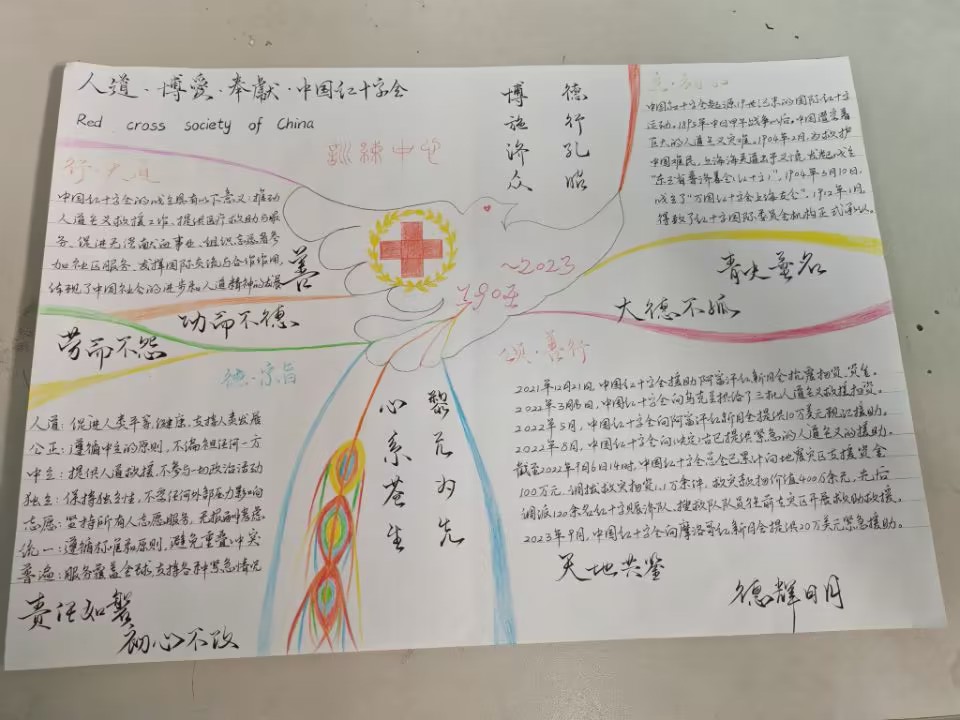 人道·博爱·奉献·中国红十字会
Red cross society of China
行·大道
中国红十字会的成立具有以下意义：推动
人道主义救援工作、提供医疗救助与服
务、促进无偿献血事业、组织志愿者参
加社区服务、发挥国际交流与合作作用，
体现了中国社会的进步和人道精神的发展
善
功而不德
劳而不怨
德·宗旨
人道：促进人类平等，健康，支持人类发展
公正：遵循中立的原则，不偏袒任何一方
中立：提供人道救援，不参与一切政治活动
独立：保持独立性，不受任何外部压力影响
志愿：坚持所有人志愿服务，无报酬考虑
统一：遵循标准和原则，避免重叠、冲突
普遍：服务覆盖全球，支持各种紧急情况
责任如磐
初心不改
德行孔昭
博施济众
~2023
1904
黎元为先
心系苍生
中国红十字会起源19世纪末的国际红十字
运动。1895年中日甲午战争以后，中国遭受着
巨大的人道主义灾难。1904年2月，为救护
中国难民，上海海关道出于义愤，发起成立
"东三省普济善会(红十字)"，1904年3月10日，
成立了"万国红十字会上海支会"，1912年1月，
得救了红十字国际委员会机构正式承认。
青史登名
大德不孤
颂·善行
2021年12月21日，中国红十字会援助阿富汗红新月会抗震物资、资金。
2022年3月8日，中国红十字会向乌克兰提供了三批人道主义救援物资。
2022年5月，中国红十字会向阿富汗红新月会提供10万美元现汇援助。
2022年8月，中国红十字会向(决定)古巴提供紧急的人道主义的援助。
截至2022年9月6日14时，中国红十字会总会已累计向地震灾区支援资金
100万元，调拨救灾物资1.1万条件，救灾款物价值400万余元，先后
调派120余名红十字赈济队、搜救队队员往前去灾区开展救助救援。
2023年9月，中国红十字会向摩洛哥红新月会提供20万美元紧急援助。
天地共鉴
德辉日月